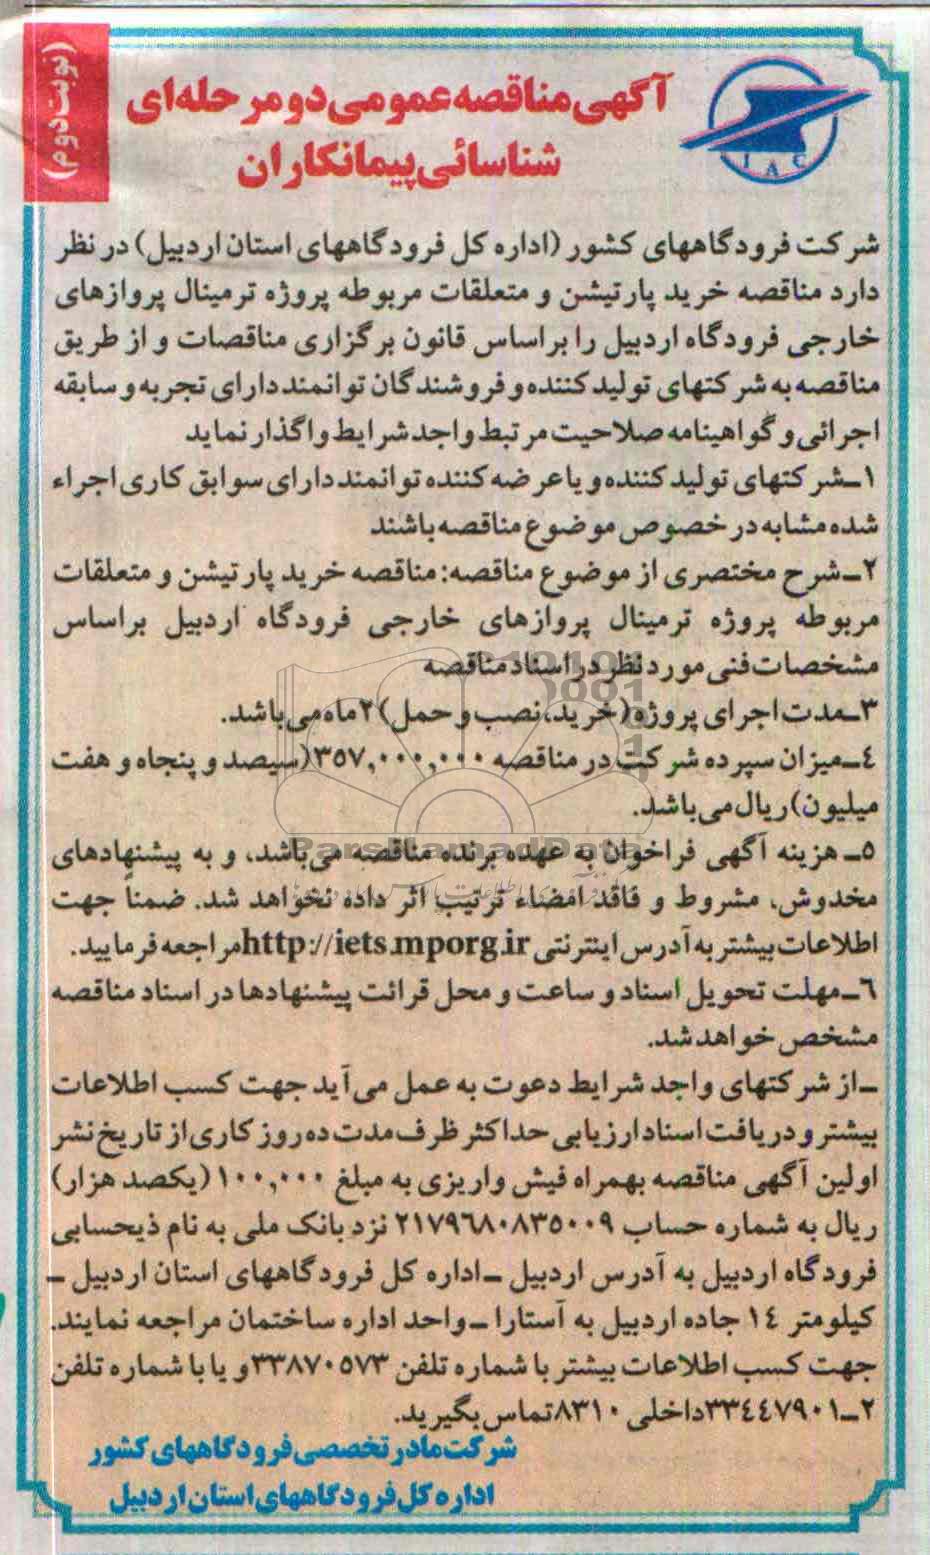 (نوبت دوم)
آگهی مناقصه عمومی دو مرحله‌ای
شناسائی پیمانکاران
I A C
شرکت فرودگاههای کشور (اداره کل فرودگاههای استان اردبیل) در نظر
دارد مناقصه خرید پارتیشن و متعلقات مربوطه پروژه ترمینال پروازهای
خارجی فرودگاه اردبیل را براساس قانون برگزاری مناقصات و از طریق
مناقصه به شرکتهای تولید کننده و فروشندگان توانمند دارای تجربه و سابقه
اجرائی و گواهینامه صلاحیت مرتبط واجد شرایط واگذار نماید
۱ــشرکتهای تولید کننده و یا عرضه کننده توانمند دارای سوابق کاری اجراء
شده مشابه در خصوص موضوع مناقصه باشند
۲ــشرح مختصری از موضوع مناقصه: مناقصه خرید پارتیشن و متعلقات
مربوطه پروژه ترمینال پروازهای خارجی فرودگاه اردبیل براساس
مشخصات فنی مورد نظر در اسناد مناقصه
۳ــمدت اجرای پروژه (خرید، نصب و حمل) ۲ ماه می باشد.
٤ــمیزان سپرده شرکت در مناقصه ۳۵۷,۰۰۰,۰۰۰ (سیصد و پنجاه و هفت
میلیون) ریال می باشد.
۵ــ هزینه آگهی فراخوان به عهده برنده مناقصه می‌باشد، و به پیشنهادهای
مخدوش، مشروط و فاقد امضاء ترتیب اثر داده نخواهد شد. ضمناً جهت
اطلاعات بیشتر به آدرس اینترنتی http://iets.mporg.ir مراجعه فرمایید.
٦ــمهلت تحویل اسناد و ساعت و محل قرائت پیشنهادها در اسناد مناقصه
مشخص خواهد شد.
ــ از شرکتهای واجد شرایط دعوت به عمل می آید جهت کسب اطلاعات
بیشتر و دریافت اسناد ارزیابی حداکثر ظرف مدت ده روز کاری از تاریخ نشر
اولین آگهی مناقصه بهمراه فیش واریزی به مبلغ ۱۰۰,۰۰۰ (یکصد هزار)
ریال به شماره حساب ۲۱۷۹٦۸۰۸۳۵۰۰۹ نزد بانک ملی به نام ذیحسابی
فرودگاه اردبیل به آدرس اردبیل ــ اداره کل فرودگاههای استان اردبیل ــ
کیلومتر ۱٤ جاده اردبیل به آستارا ــ واحد اداره ساختمان مراجعه نمایند.
جهت کسب اطلاعات بیشتر با شماره تلفن ۳۳۸۷۰۵۷۳ و یا با شماره تلفن
۲ــ۳۳٤٤۷۹۰۱ داخلی ۸۳۱۰ تماس بگیرید.
شرکت مادر تخصصی فرودگاههای کشور
اداره کل فرودگاههای استان اردبیل
ParsNamadData